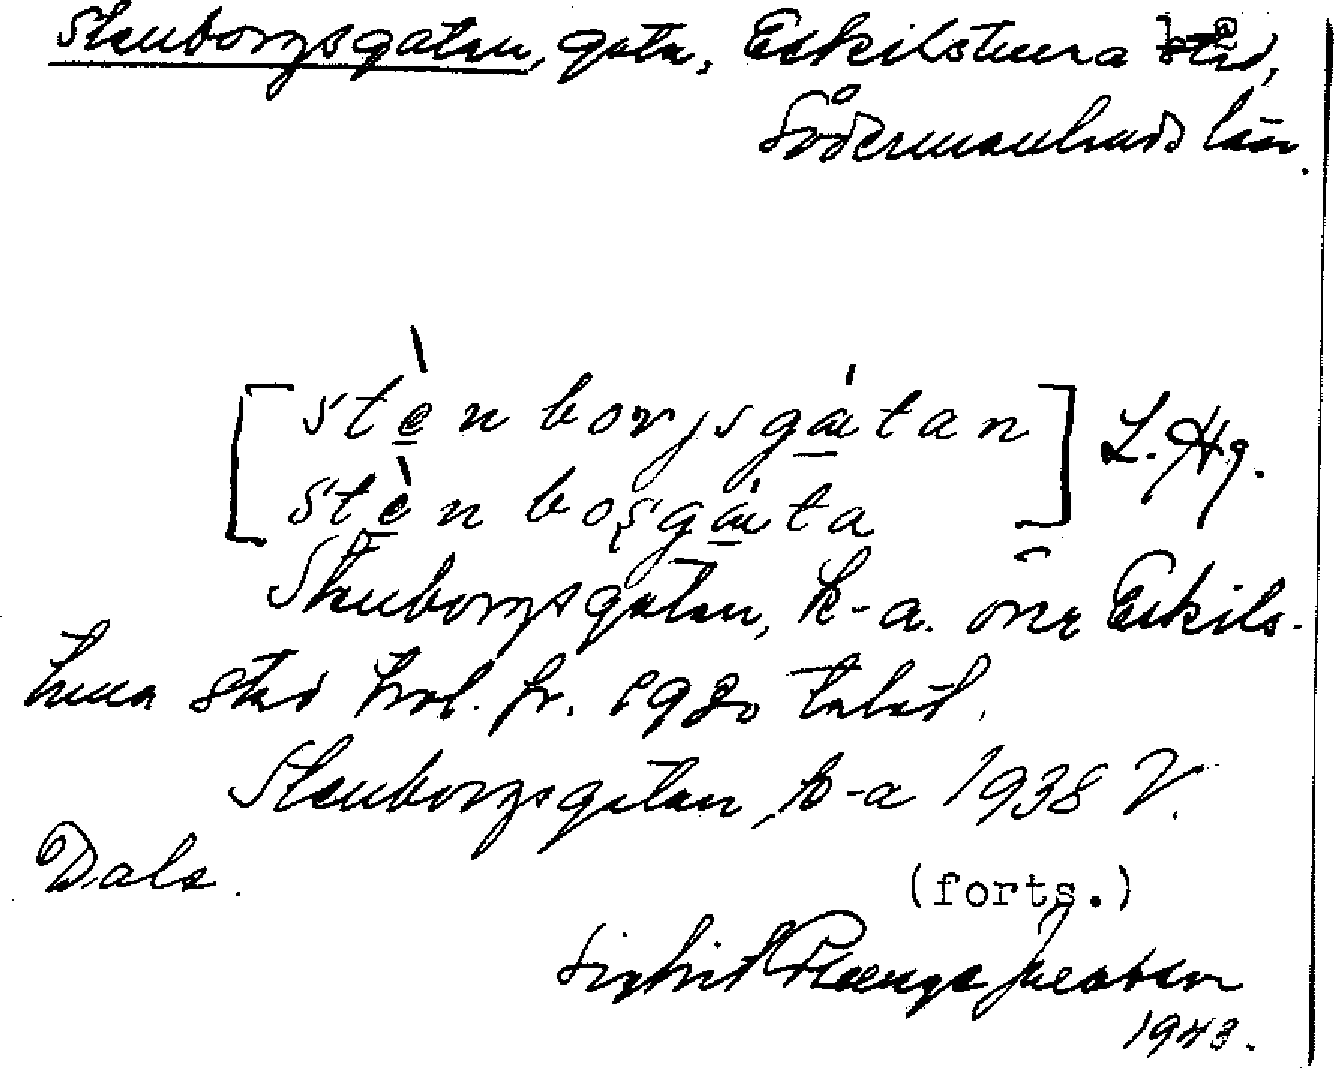 Stenborgsgatan, gata, Eskilstuna stad,
Södermanlands län.
[stènborjsgátan] L. Hg.
stènbosgáta
Stenborgsgatan, k-a. över Eskils-
tuna stad trol. fr. 1930 talet.
Stenborgsgatan, k-a 1938 V.
Dala.
(forts.)
Sigfrid Jacobson
1943.